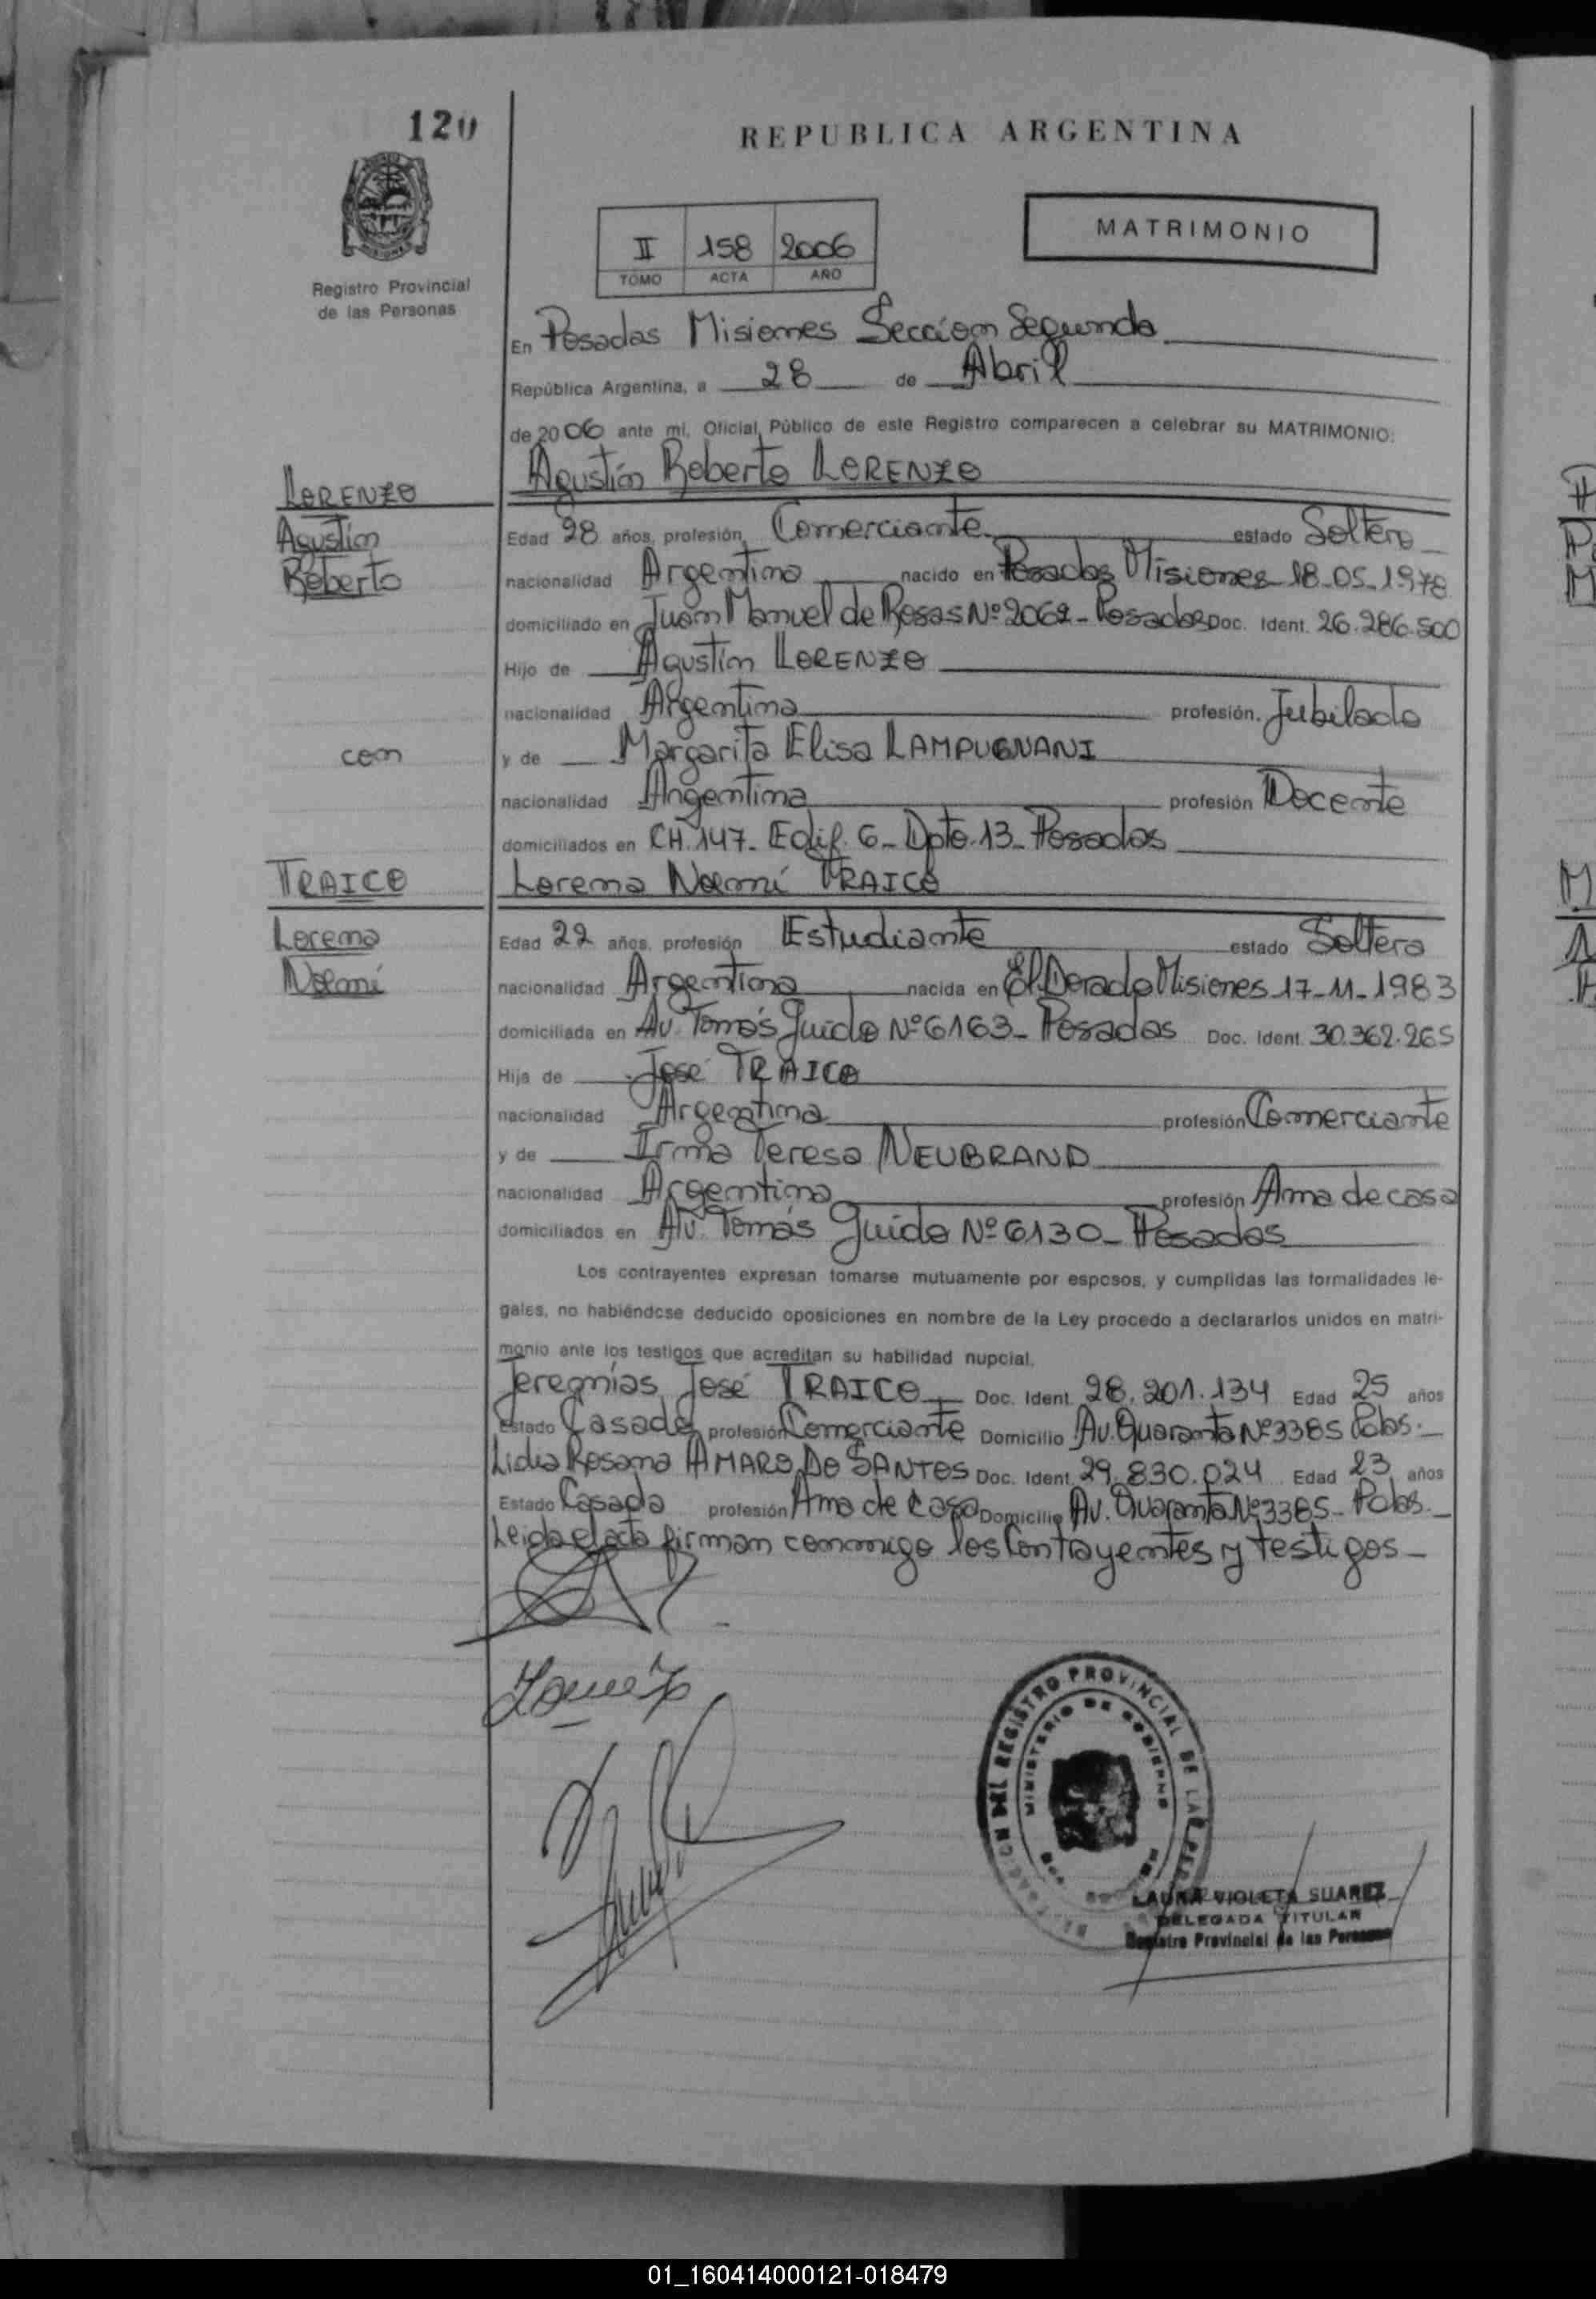 120
REPUBLICA ARGENTINA
MATRIMONIO
II 158 2006
TOMO ACTA AÑO
Registro Provincial
de las Personas
En Posadas Misiones Sección Segunda
República Argentina, a 28 de Abril
de 2006 ante mi, Oficial Público de este Registro comparecen a celebrar su MATRIMONIO:
Agustín Roberto LORENZO
LORENZO
Agustín
Roberto
Edad 28 años, profesión Comerciante estado Soltero
nacionalidad Argentina nacido en Posadas Misiones 18-05-1978
domiciliado en Juan Manuel de Rosas Nº 2062 - Posadas Doc. Ident. 26.286.500
Hijo de Agustín LORENZO
nacionalidad Argentina profesión. Jubilado
con
y de Margarita Elisa LAMPUGNANI
nacionalidad Argentina profesión Docente
domiciliados en CH. 147- Edif. 6- Dpto. 13- Posadas
TRAICO
Lorena Noemí TRAICO
Lorena
Noemí
Edad 22 años. profesión Estudiante estado Soltera
nacionalidad Argentina nacida en El Dorado Misiones 17-11-1983
domiciliada en Av. Tomás Guido Nº 6163- Posadas Doc. Ident. 30.362.265
Hija de José TRAICO
nacionalidad Argentina profesión Comerciante
y de Irma Teresa NEUBRAND
nacionalidad Argentina profesión Ama de casa
domiciliados en Av. Tomás Guido Nº 6130- Posadas
Los contrayentes expresan tomarse mutuamente por esposos, y cumplidas las formalidades le-
gales, no habiéndose deducido oposiciones en nombre de la Ley procedo a declararlos unidos en matri-
monio ante los testigos que acreditan su habilidad nupcial.
Jeremías José TRAICO Doc. Ident. 28.201.134 Edad 25 años
Estado Casado profesión Comerciante Domicilio Av. Quaranta Nº 3385 Pdas.
Lidia Rosana AMARO DO SANTOS Doc. Ident. 29.830.024 Edad 23 años
Estado Casada profesión Ama de Casa Domicilio Av. Quaranta Nº 3385- Pdas.
Leida el acta firman conmigo los Contrayentes y testigos-
DELEGACION DEL REGISTRO PROVINCIAL DE LAS PER
MINISTERIO DE GOBIERNO
LAURA VIOLETA SUAREZ
DELEGADA TITULAR
Registro Provincial de las Personas
01_160414000121-018479